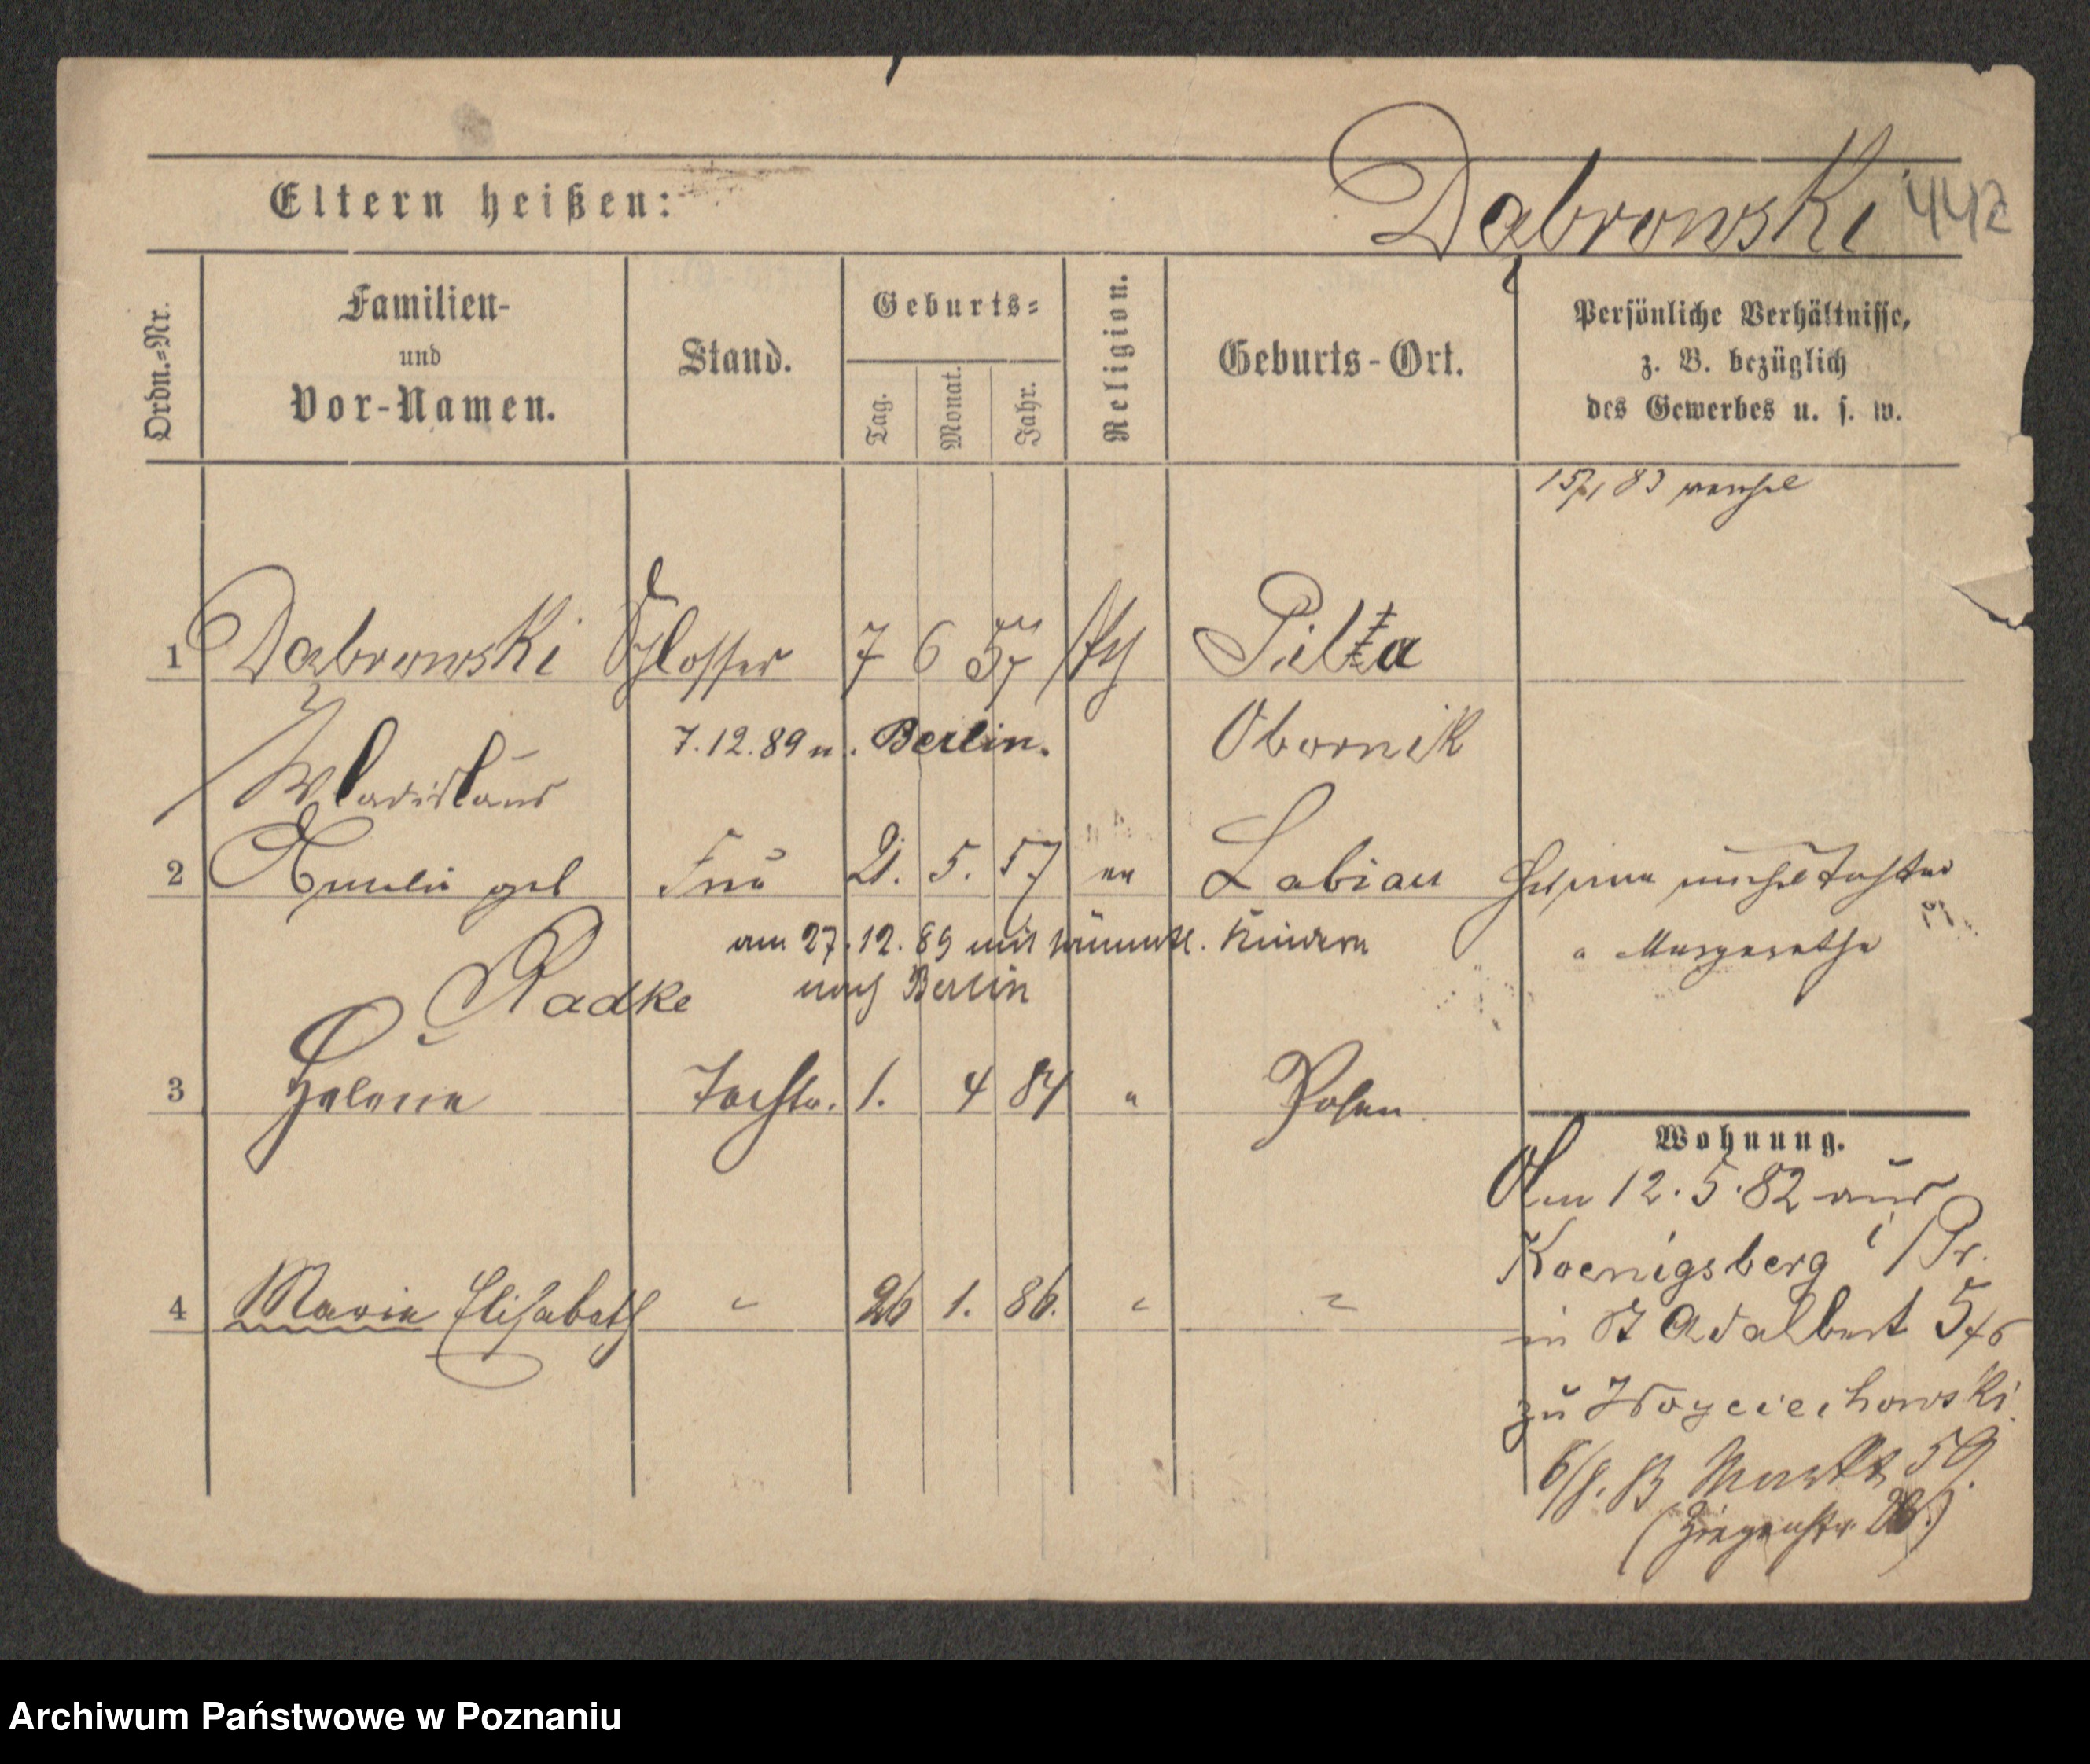 Eltern heißen:
Dąbrowski 442
Ordn.-Nr.
Familien- und Vor-Namen.
Stand.
Geburts-
Tag.
Monat.
Jahr.
Religion.
Geburts-Ort.
Persönliche Verhältnisse,
z. B. bezüglich
des Gewerbes u. s. w.
83
1 Dabrowski Schlosser 7 6 57 Pilka
Wladislaus 7.12.89 n. Berlin. Obornik
2 Amalie geb Frau 21. 5. 57 Labiau
am 27.12.89 mit sämmtl. Kindern
Radke nach Berlin
Margarethe
3 Helene Tochter. 1. 4 84 " Posen
4 Maria Elisabeth " 26 1. 86. " "
Wohnung.
Am 12.5.82 aus
Koenigsberg i/Pr.
in St Adalbert 5
zu Woyciechowski
Markt 59.
(Ziegenstr.
Archiwum Państwowe w Poznaniu